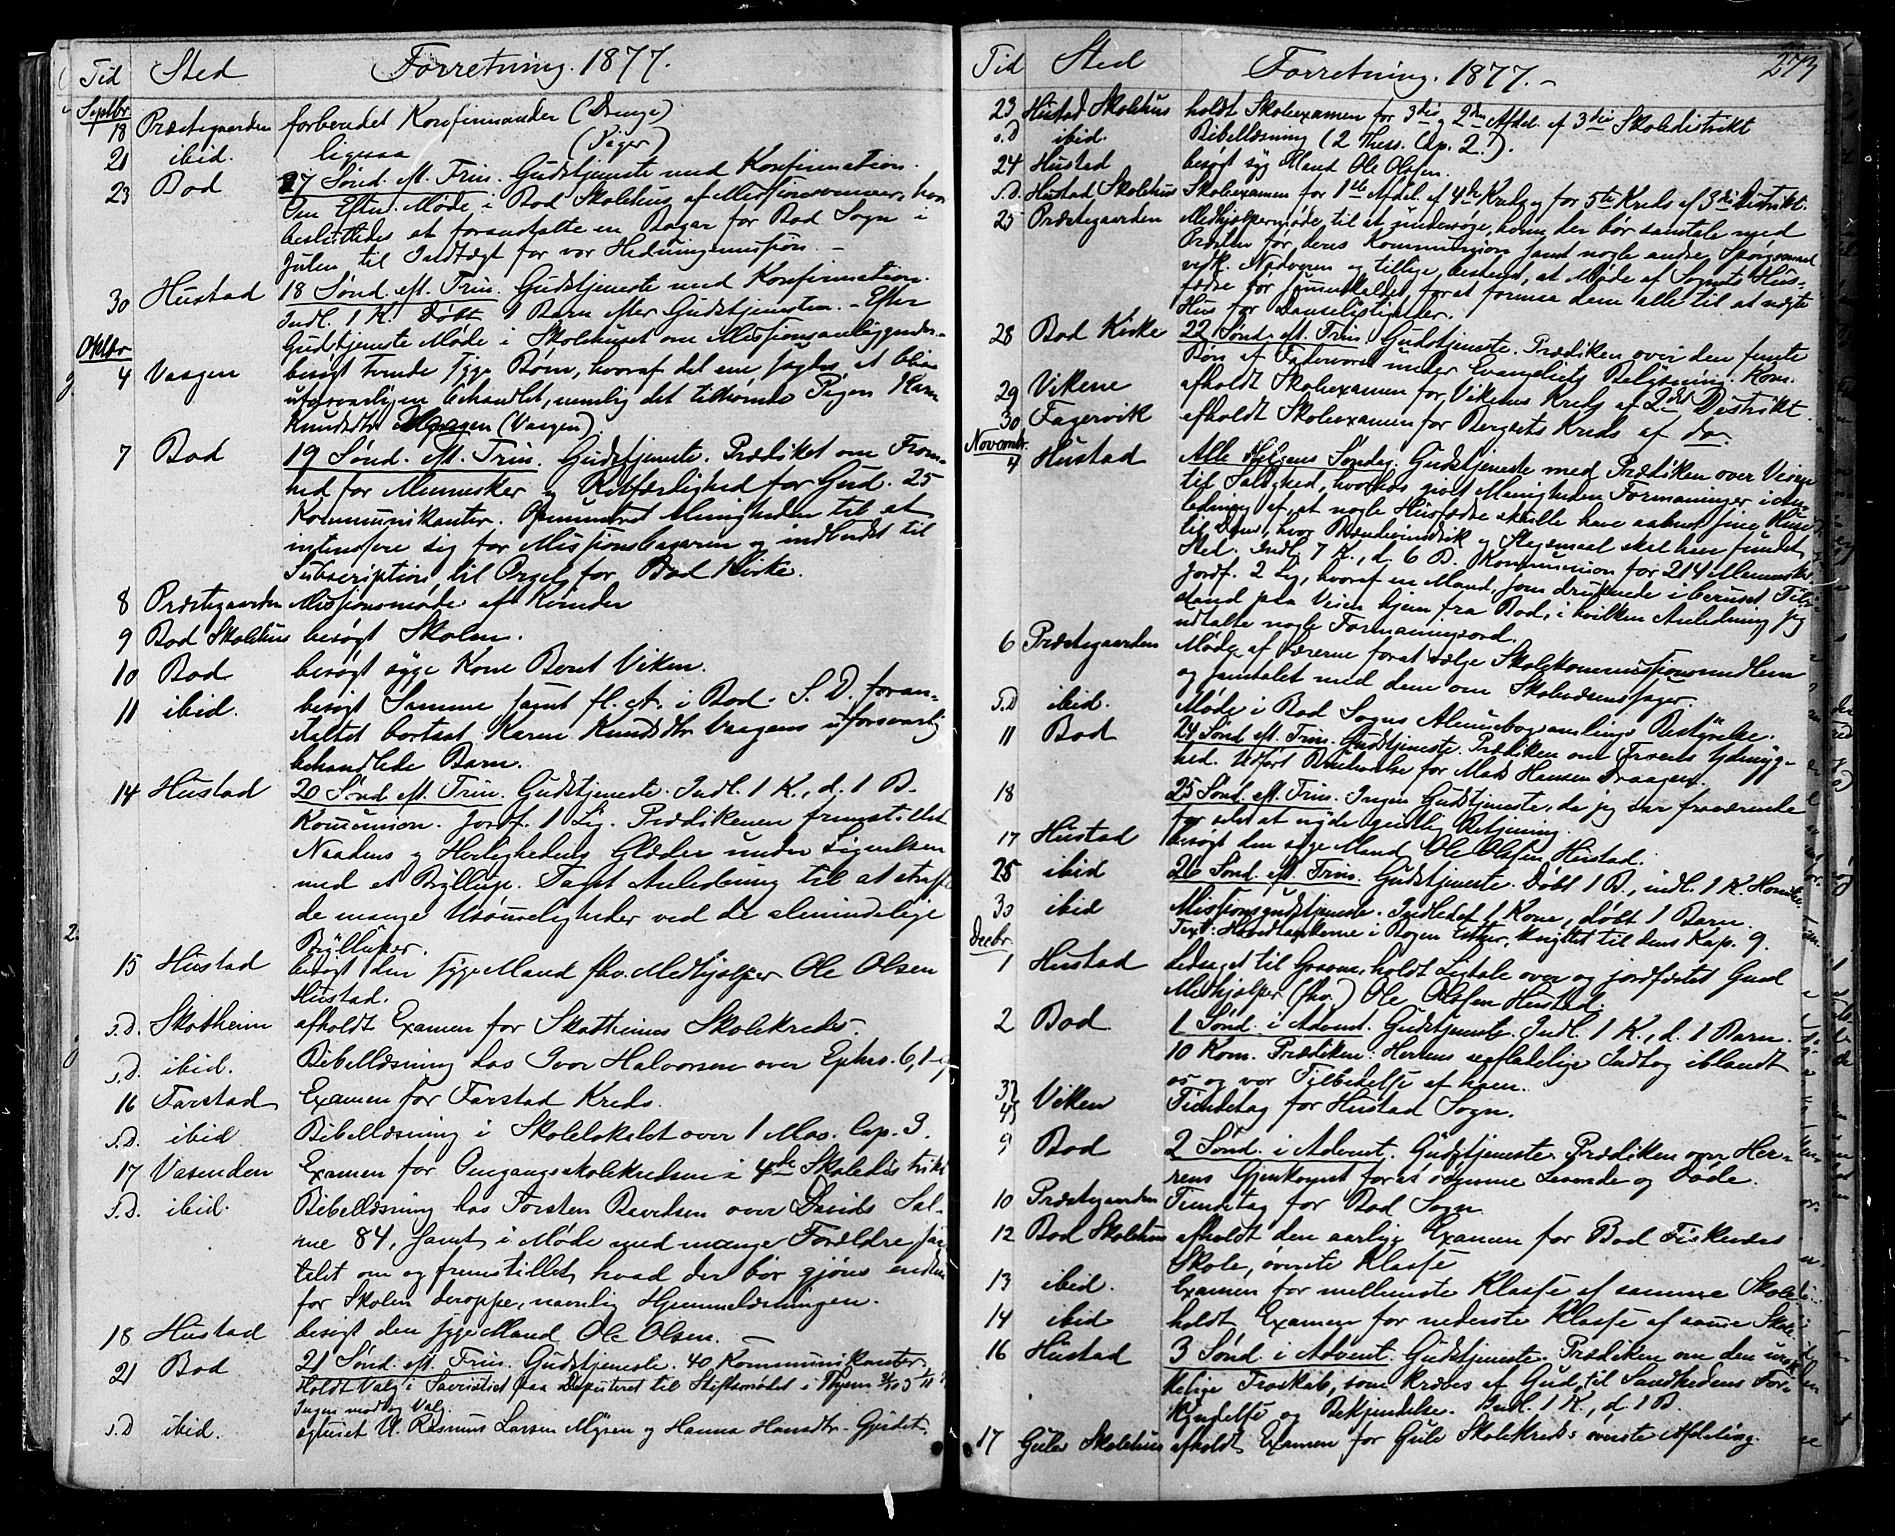 Tid Sted Forretning. 1877.
Septbr.
18 Præstegaarden forberedet Konfirmander (Drenge)
21 ibid. ligesaa (Piger)
23 Bod 17 Sønd. eft. Trin. Gudstjeneste med Konfirmation.
Om Efterm. Møde i Bod Skolehus af Missionsvenner, hvor
besluttedes at foranstalte en Bazar for Bod Sogn i
Julen til Indtægt for vor Hedningemission. –
30 Hustad 18 Sønd. eft. Trin. Gudstjeneste med Konfirmation.
Indl. 1 K. Døbt 1 Barn efter Gudstjenesten. – Efter
Gudstjeneste Møde i Skolehuset om Missionsanliggender.
Oktbr
4 Vaagen besøgt tvende syge Børn, hvoraf det ene sagdes at blive
uforsvarligen behandlet, nemlig det tilhørende Pigen Karen
Knudsdtr (Vaagen)
7 Bod 19 Sønd. eft. Trin. Gudstjeneste. Prædiket om From-
hed for Mennesker og Retfærdighed for Gud. 25
Kommunikanter. Opmuntret Menigheden til at
interessere sig for Missionsbazaren og indbudet til
Subscription til Orgel for Bod Kirke.
8 Præstegaarden Missionsmøde af Kvinder
9 Bod Skolehus besøgt Skolen.
10 Bod besøgt syge Kone Beret Viken.
11 ibid. besøgt Samme samt fl. A. i Bod. S. D. foran-
staltet bortsat Karen Knudsdtr Vaagens uforsvarlig
behandlede Barn.
14 Hustad 20 Sønd. eft. Trin. Gudstjeneste. Indl. 1 K., d. 1 B.
Kommunion. Jordf. 1 Lig. Prædikenen fremstillet
Naadens og Herlighedens Glæder under Lignelsen
med et Bryllup. Taget Anledning til at straffe
de mange Usømmeligheder ved de almindelige
Brylluper.
15 Hustad besøgt den syge Mand fhv. Medhjælper Ole Olsen
Hustad.
s.D. Skotheim afholdt Examen for Skotheims Skolekreds.
s.D. ibid. Bibellæsning hos Iver Halvorsen over Ephes. 6, 1-9
16 Farstad Examen for Farstad Kreds.
s.D. ibid Bibellæsning i Skolelokalet over 1 Mos. Cap. 3.
17 Vasenden Examen for Omgangsskolekredsen i 4de Skoledistrikt
s.D. ibid. Bibellæsning hos Torsten Baardsen over Davids Sal-
me 84, samt i Møde med mange Forældre sam
talet om og fremstillet, hvad der bør gjøres endnu
for Skolen deroppe, navnlig Hjemmelæsningen.
18 Hustad besøgt den syge Mand Ole Olsen.
21 Bod 21 Sønd. eft. Trin. Gudstjeneste. 40 Kommunikanter.
Holdt Valg i Sacristiet paa Deputeret til Stiftsmødet i
Ingen modtog Valg.
s.D ibid. Rasmus Larsen Mysen og Hanna Hansdtr.
Tid Sted Forretning. 1877. – 273
23 Hustad Skolehus holdt Skoleexamen for 3die og 2den Afdel. af 3die Skoledistrikt
s.D ibid. Bibellæsning (2 Thess. Cap. 2.).
24 Hustad besøgt syg Mand Ole Olsen.
s.D. Hustad Skolehus Skoleexamen for 1ste Afdel. af 4de Kreds og for 5te Kreds af 3die Distrikt.
25 Præstegaarden Medhjælpermøde, til at undersøge, hvem der bør samtale med
Præsten før deres Kommunion samt nogle andre Spørgsmaal
vedk. Nadveren og tillige, bestemt, at Møde af Sognets Hus-
fædre bør sammenkaldes forat formaa dem alle til at nægte
Hus for Danselystigheder.
28 Bod Kirke 22 Sønd. eft. Trin. Gudstjeneste. Prædiken over den femte
Bøn af Fadervoret under Evangeliets Belysning. Kom.
29 Vikene afholdt Skoleexamen for Vikenes Kreds af 2det Distrikt.
30 Fagervik afholdt Skoleexamen for Bergsets Kreds af do.
Novembr.
4 Hustad Alle Helgens Søndag. Gudstjeneste med Prædiken over Veien
til Salighed, hvorhos givet Menigheden Formaninger i An-
ledning af, at nogle Husfædre skulle have aabnet sine Huse
til Dans, hvor Brændevinsdrik og Slagsmaal skal have fundet
Sted. Indl. 7 K., d. 6 B. Kommunion for 214 Mennesker.
Jordf. 2 Lig, hvoraf en Mand, som druknede i beruset Til-
stand paa Veien hjem fra Bod, i hvilken Anledning jeg
udtalte nogle Formaningsord.
6 Præstegaarden Møde af Lærerne forat vælge Skolekommissionsmedlem
og samtalet med dem om Skolevæsenssager.
s.D ibid. Møde i Bod Sogns Almuebogsamlings Bestyrelse.
11 Bod 24 Sønd. eft. Trin. Gudstjeneste. Prædiken om Troens Ydmyg-
hed. Udført for Mads Hansen
18 25 Sønd. eft. Trin. Ingen Gudstjeneste, da jeg var fraværende
for selv at nyde geistlig Betjening.
17 Hustad besøgt den syge Mand Ole Olsen Hustad.
25 ibid 26 Sønd. eft. Trin. Gudstjeneste. Døbt 1 B., indl. 1 K.
30 ibid Missionsgudstjeneste. Indledet 1 Kone, døbt 1 Barn.
Text: Hovedtankerne i Bogen Esther, knyttet til dens Kap. 9.
Decbr.
1 Hustad Ledsaget til Graven, holdt Ligtale over og jordfæstet Gaml
Medhjælper (fhv.) Ole Olsen Hustad.
2 Bod 1 Sønd. i Advent. Gudstjeneste. Indl. 1 K., d. 1 Barn.
10 Kom. Prædiken: Herrens Indtog iblandt
os og vor Tilbedelse af ham.
3, 4, 5 Viken Tiendetag for Hustad Sogn.
9 Bod 2 Sønd. i Advent. Gudstjeneste. Prædiken over Her-
rens Gjenkomst for at dømme Levende og Døde.
10 Præstegaarden Tiendetag for Bod Sogn
12 Bod Skolehus afholdt den aarlige Examen for Bod Fiskevær
Skole, øverste Klasse
13 ibid. Examen for mellemste Klasse af samme Skole
14 ibid holdt Examen for nederste Klasse af samme Skole
16 Hustad 3 Sønd. i Advent. Gudstjeneste. Prædiken om den urok-
kelige Troskab, som kræves af Gud til Sandhedens For-
kyndelse og Bekjendelse. Indl. 1 K., d. 1 B.
17 Gule Skolehus afholdt Examen for Gule Skolekreds øverste Afdeling.